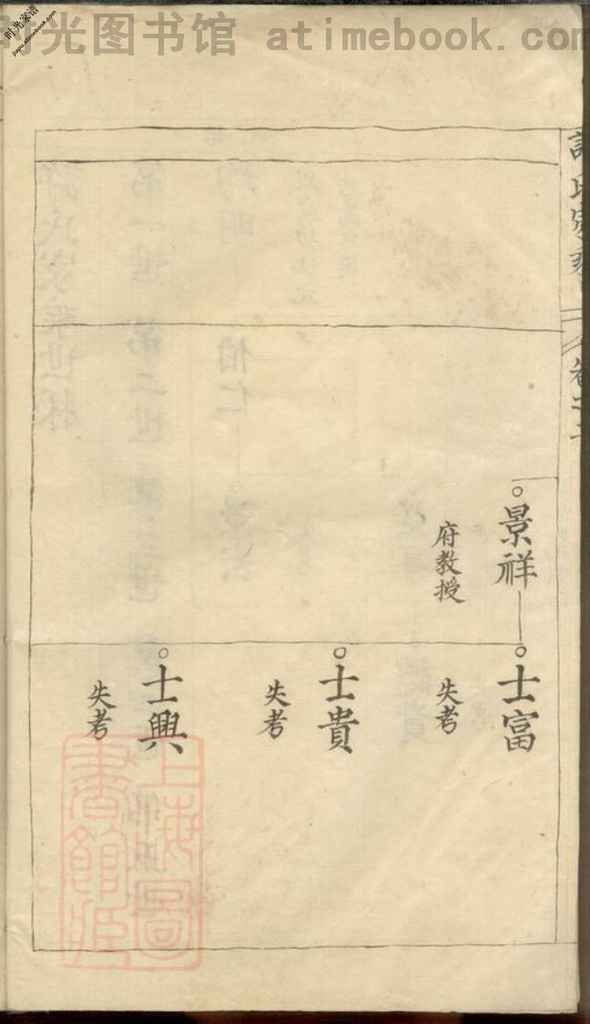 时光图书馆 atimebook.com
卷之二
景祥
府教授
士富
失考
士貴
失考
士興
失考
上海圖
書館藏